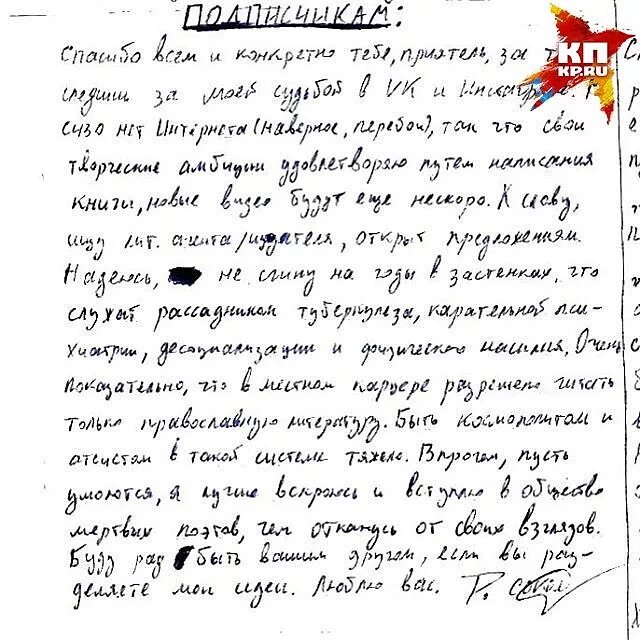 ПОДПИСЧИКАМ:
Спасибо всем и конкретно тебе, приятель, за
КП
KP.RU
следишь за моей судьбой в VK и Инстаграме.
сизо нет Интернета (наверное, перебои), так что свои
творческие амбиции удовлетворяю путем написания
книги, новые видео будут еще нескоро. К слову,
ищу лит. агента/издателя, открыт предложениям.
Надеюсь, не сгину на годы в застенках, что
служат рассадником туберкулеза, карательной пси-
хиатрии, десоциализации и физического насилия. Очень
показательно, что в местном карцере разрешено читать
только православную литературу. Быть космополитом и
атеистом в такой системе тяжело. Впрочем, пусть
умоются, я лучше вскроюсь и вступлю в Общество
мертвых поэтов, чем откажусь от своих взглядов.
Буду рад быть вашим другом, если вы раз-
деляете мои идеи. Люблю вас. Р. Сокол